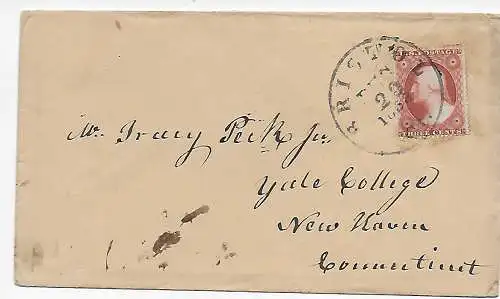 BRISTOL
U.S. POSTAGE
THREE CENTS
Mr. Tracy Peck Jr.
Yale College
New Haven
Connecticut